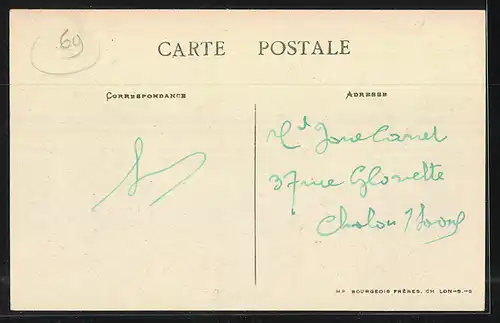 69
CARTE POSTALE
CORRESPONDANCE
ADRESSE
37 rue Gloriette
Chalon s/ Saone
H.P. BOURGEOIS FRÈRES, CH LON-S.-S